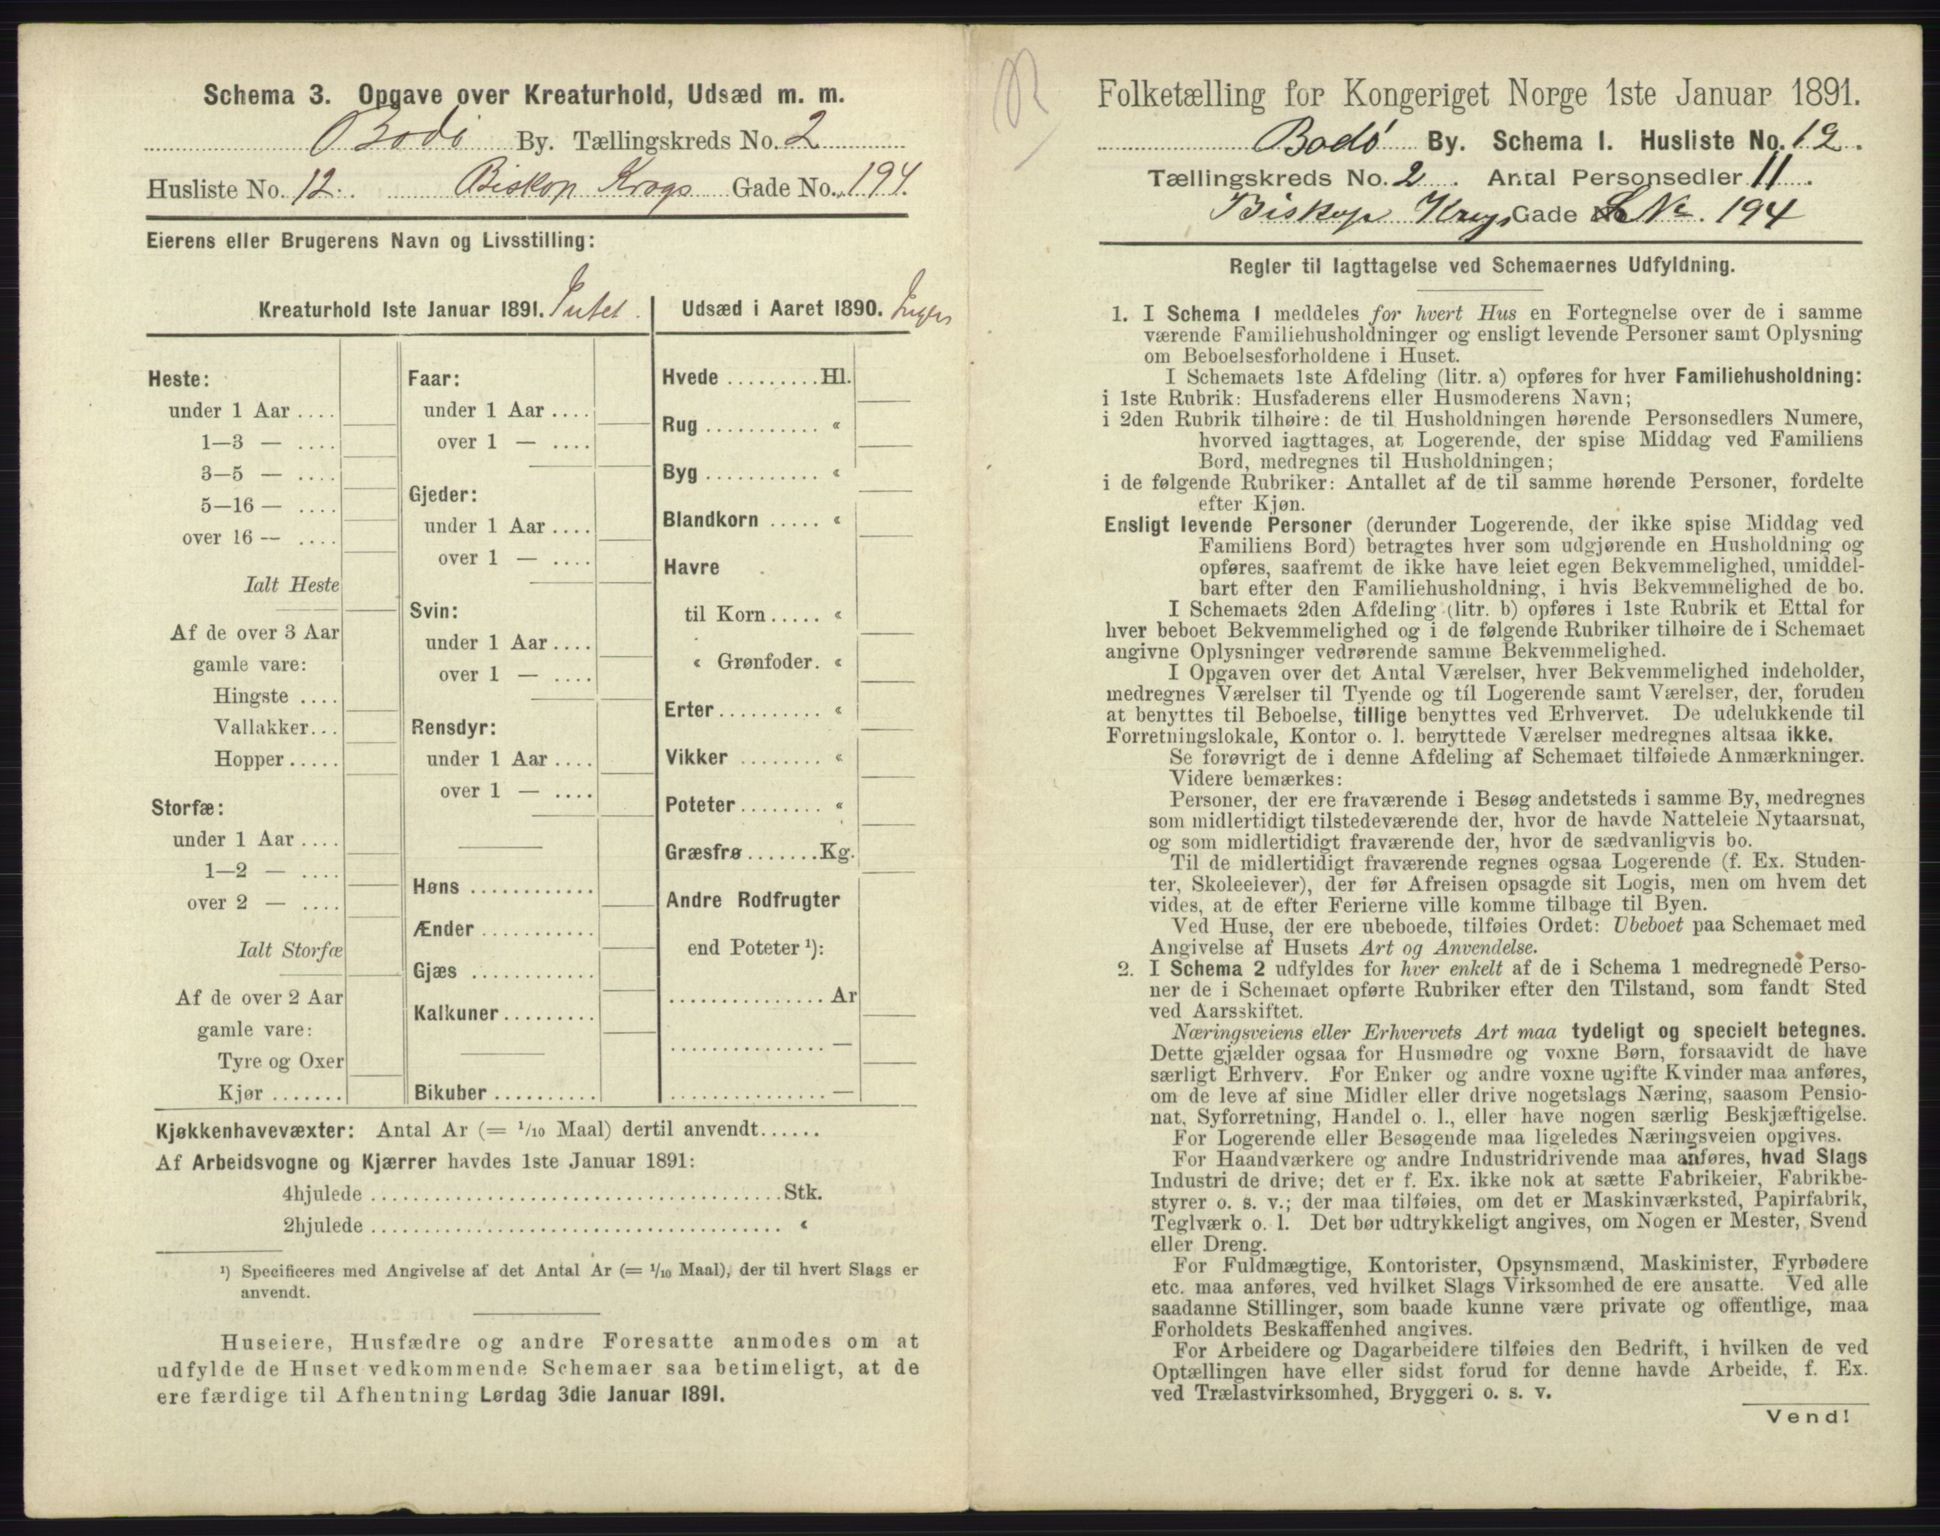 Schema 3. Opgave over Kreaturhold, Udsæd m. m.
Bodø By. Tællingskreds No. 2
Husliste No. 12. Biskop Krogs Gade No. 194.
Eierens eller Brugerens Navn og Livsstilling:
Kreaturhold 1ste Januar 1891. Intet.
Heste:
under 1 Aar ....
1—3 — ....
3—5 — ....
5—16 — ....
over 16 — ....
Ialt Heste
Af de over 3 Aar
gamle vare:
Hingste ....
Vallakker...
Hopper .....
Storfæ:
under 1 Aar ....
1—2 — ....
over 2 — ....
Ialt Storfæ
Af de over 2 Aar
gamle vare:
Tyre og Oxer
Kjør .......
Faar:
under 1 Aar ....
over 1 — ....
Gjeder:
under 1 Aar ....
over 1 — ....
Svin:
under 1 Aar ....
over 1 — ....
Rensdyr:
under 1 Aar ....
over 1 — ....
Høns ............
Ænder ...........
Gjæs ............
Kalkuner.........
Bikuber ..........
Udsæd i Aaret 1890. Ingen
Hvede .........Hl.
Rug ........... «
Byg ........... «
Blandkorn ..... «
Havre
til Korn ..... «
« Grønfoder. «
Erter.......... «
Vikker ........ «
Poteter ........ «
Græsfrø .......Kg.
Andre Rodfrugter
end Poteter ¹):
............... Ar
............... —
............... —
Kjøkkenhavevæxter: Antal Ar (= 1/10 Maal) dertil anvendt......
Af Arbeidsvogne og Kjærrer havdes 1ste Januar 1891:
4hjulede ........................................ Stk.
2hjulede ........................................ «
¹) Specificeres med Angivelse af det Antal Ar (= 1/10 Maal), der til hvert Slags er
anvendt.
Huseiere, Husfædre og andre Foresatte anmodes om at
udfylde de Huset vedkommende Schemaer saa betimeligt, at de
ere færdige til Afhentning Lørdag 3die Januar 1891.
Folketælling for Kongeriget Norge 1ste Januar 1891.
Bodø By. Schema I. Husliste No. 12.
Tællingskreds No. 2. Antal Personsedler 11.
Biskop Krogs Gade No. 194
Regler til Iagttagelse ved Schemaernes Udfyldning.
1. I Schema 1 meddeles for hvert Hus en Fortegnelse over de i samme
værende Familiehusholdninger og ensligt levende Personer samt Oplysning
om Beboelsesforholdene i Huset.
I Schemaets 1ste Afdeling (litr. a) opføres for hver Familiehusholdning:
i 1ste Rubrik: Husfaderens eller Husmoderens Navn;
i 2den Rubrik tilhøire: de til Husholdningen hørende Personsedlers Numere,
hvorved iagttages, at Logerende, der spise Middag ved Familiens
Bord, medregnes til Husholdningen;
i de følgende Rubriker: Antallet af de til samme hørende Personer, fordelte
efter Kjøn.
Ensligt levende Personer (derunder Logerende, der ikke spise Middag ved
Familiens Bord) betragtes hver som udgjørende en Husholdning og
opføres, saafremt de ikke have leiet egen Bekvemmelighed, umiddel-
bart efter den Familiehusholdning, i hvis Bekvemmelighed de bo.
I Schemaets 2den Afdeling (litr. b) opføres i 1ste Rubrik et Ettal for
hver beboet Bekvemmelighed og i de følgende Rubriker tilhøire de i Schemaet
angivne Oplysninger vedrørende samme Bekvemmelighed.
I Opgaven over det Antal Værelser, hver Bekvemmelighed indeholder,
medregnes Værelser til Tyende og til Logerende samt Værelser, der, foruden
at benyttes til Beboelse, tillige benyttes ved Erhvervet. De udelukkende til
Forretningslokale, Kontor o. l. benyttede Værelser medregnes altsaa ikke.
Se forøvrigt de i denne Afdeling af Schemaet tilføiede Anmærkninger.
Videre bemærkes:
Personer, der ere fraværende i Besøg andetsteds i samme By, medregnes
som midlertidigt tilstedeværende der, hvor de havde Natteleie Nytaarsnat,
og som midlertidigt fraværende der, hvor de sædvanligvis bo.
Til de midlertidigt fraværende regnes ogsaa Logerende (f. Ex. Studen-
ter, Skoleelever), der før Afreisen opsagde sit Logis, men om hvem det
vides, at de efter Ferierne ville komme tilbage til Byen.
Ved Huse, der ere ubeboede, tilføies Ordet: Ubeboet paa Schemaet med
Angivelse af Husets Art og Anvendelse.
2. I Schema 2 udfyldes for hver enkelt af de i Schema 1 medregnede Perso-
ner de i Schemaet opførte Rubriker efter den Tilstand, som fandt Sted
ved Aarsskiftet.
Næringsveiens eller Erhvervets Art maa tydeligt og specielt betegnes.
Dette gjælder ogsaa for Husmødre og voxne Børn, forsaavidt de have
særligt Erhverv. For Enker og andre voxne ugifte Kvinder maa anføres,
om de leve af sine Midler eller drive nogetslags Næring, saasom Pensio-
nat, Syforretning, Handel o. l., eller have nogen særlig Beskjæftigelse.
For Logerende eller Besøgende maa ligeledes Næringsveien opgives.
For Haandværkere og andre Industridrivende maa anføres, hvad Slags
Industri de drive; det er f. Ex. ikke nok at sætte Fabrikeier, Fabrikbe-
styrer o. s. v.; der maa tilføies, om det er Maskinværksted, Papirfabrik,
Teglværk o. l. Det bør udtrykkeligt angives, om Nogen er Mester, Svend
eller Dreng.
For Fuldmægtige, Kontorister, Opsynsmænd, Maskinister, Fyrbødere
etc. maa anføres, ved hvilket Slags Virksomhed de ere ansatte. Ved alle
saadanne Stillinger, som baade kunne være private og offentlige, maa
Forholdets Beskaffenhed angives.
For Arbeidere og Dagarbeidere tilføies den Bedrift, i hvilken de ved
Optællingen have eller sidst forud for denne havde Arbeide, f. Ex.
ved Trælastvirksomhed, Bryggeri o. s. v.
Vend!